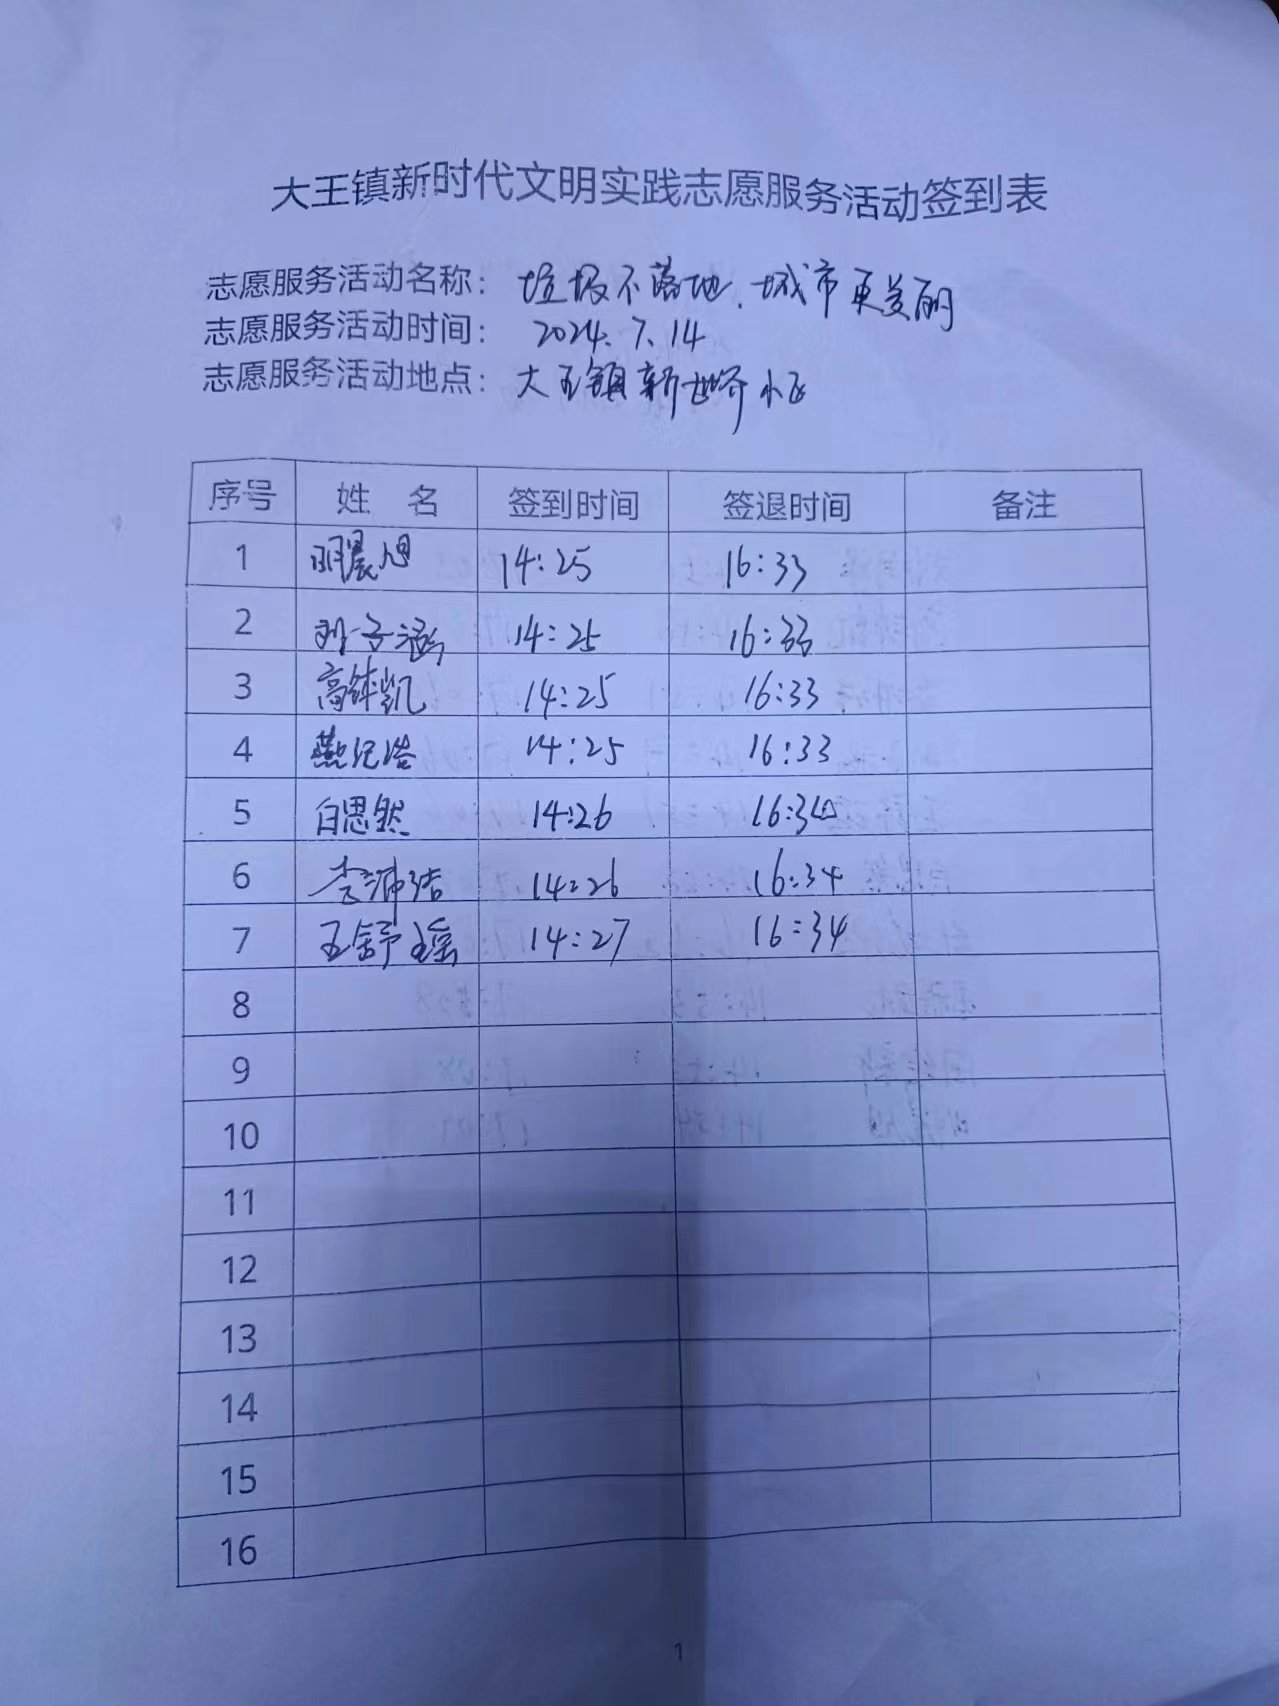 大王镇新时代文明实践志愿服务活动签到表
志愿服务活动名称：垃圾不落地、城市更美丽
志愿服务活动时间：2024.7.14
志愿服务活动地点：大王镇新世界小区
序号 姓名 签到时间 签退时间 备注
1 明晨旭 14:25 16:33
2 孙子涵 14:25 16:33
3 高铱凯 14:25 16:33
4 燕纪浩 14:25 16:33
5 白思然 14:26 16:34
6 李沛洁 14:26 16:34
7 王舒瑶 14:27 16:34
8
9
10
11
12
13
14
15
16
1